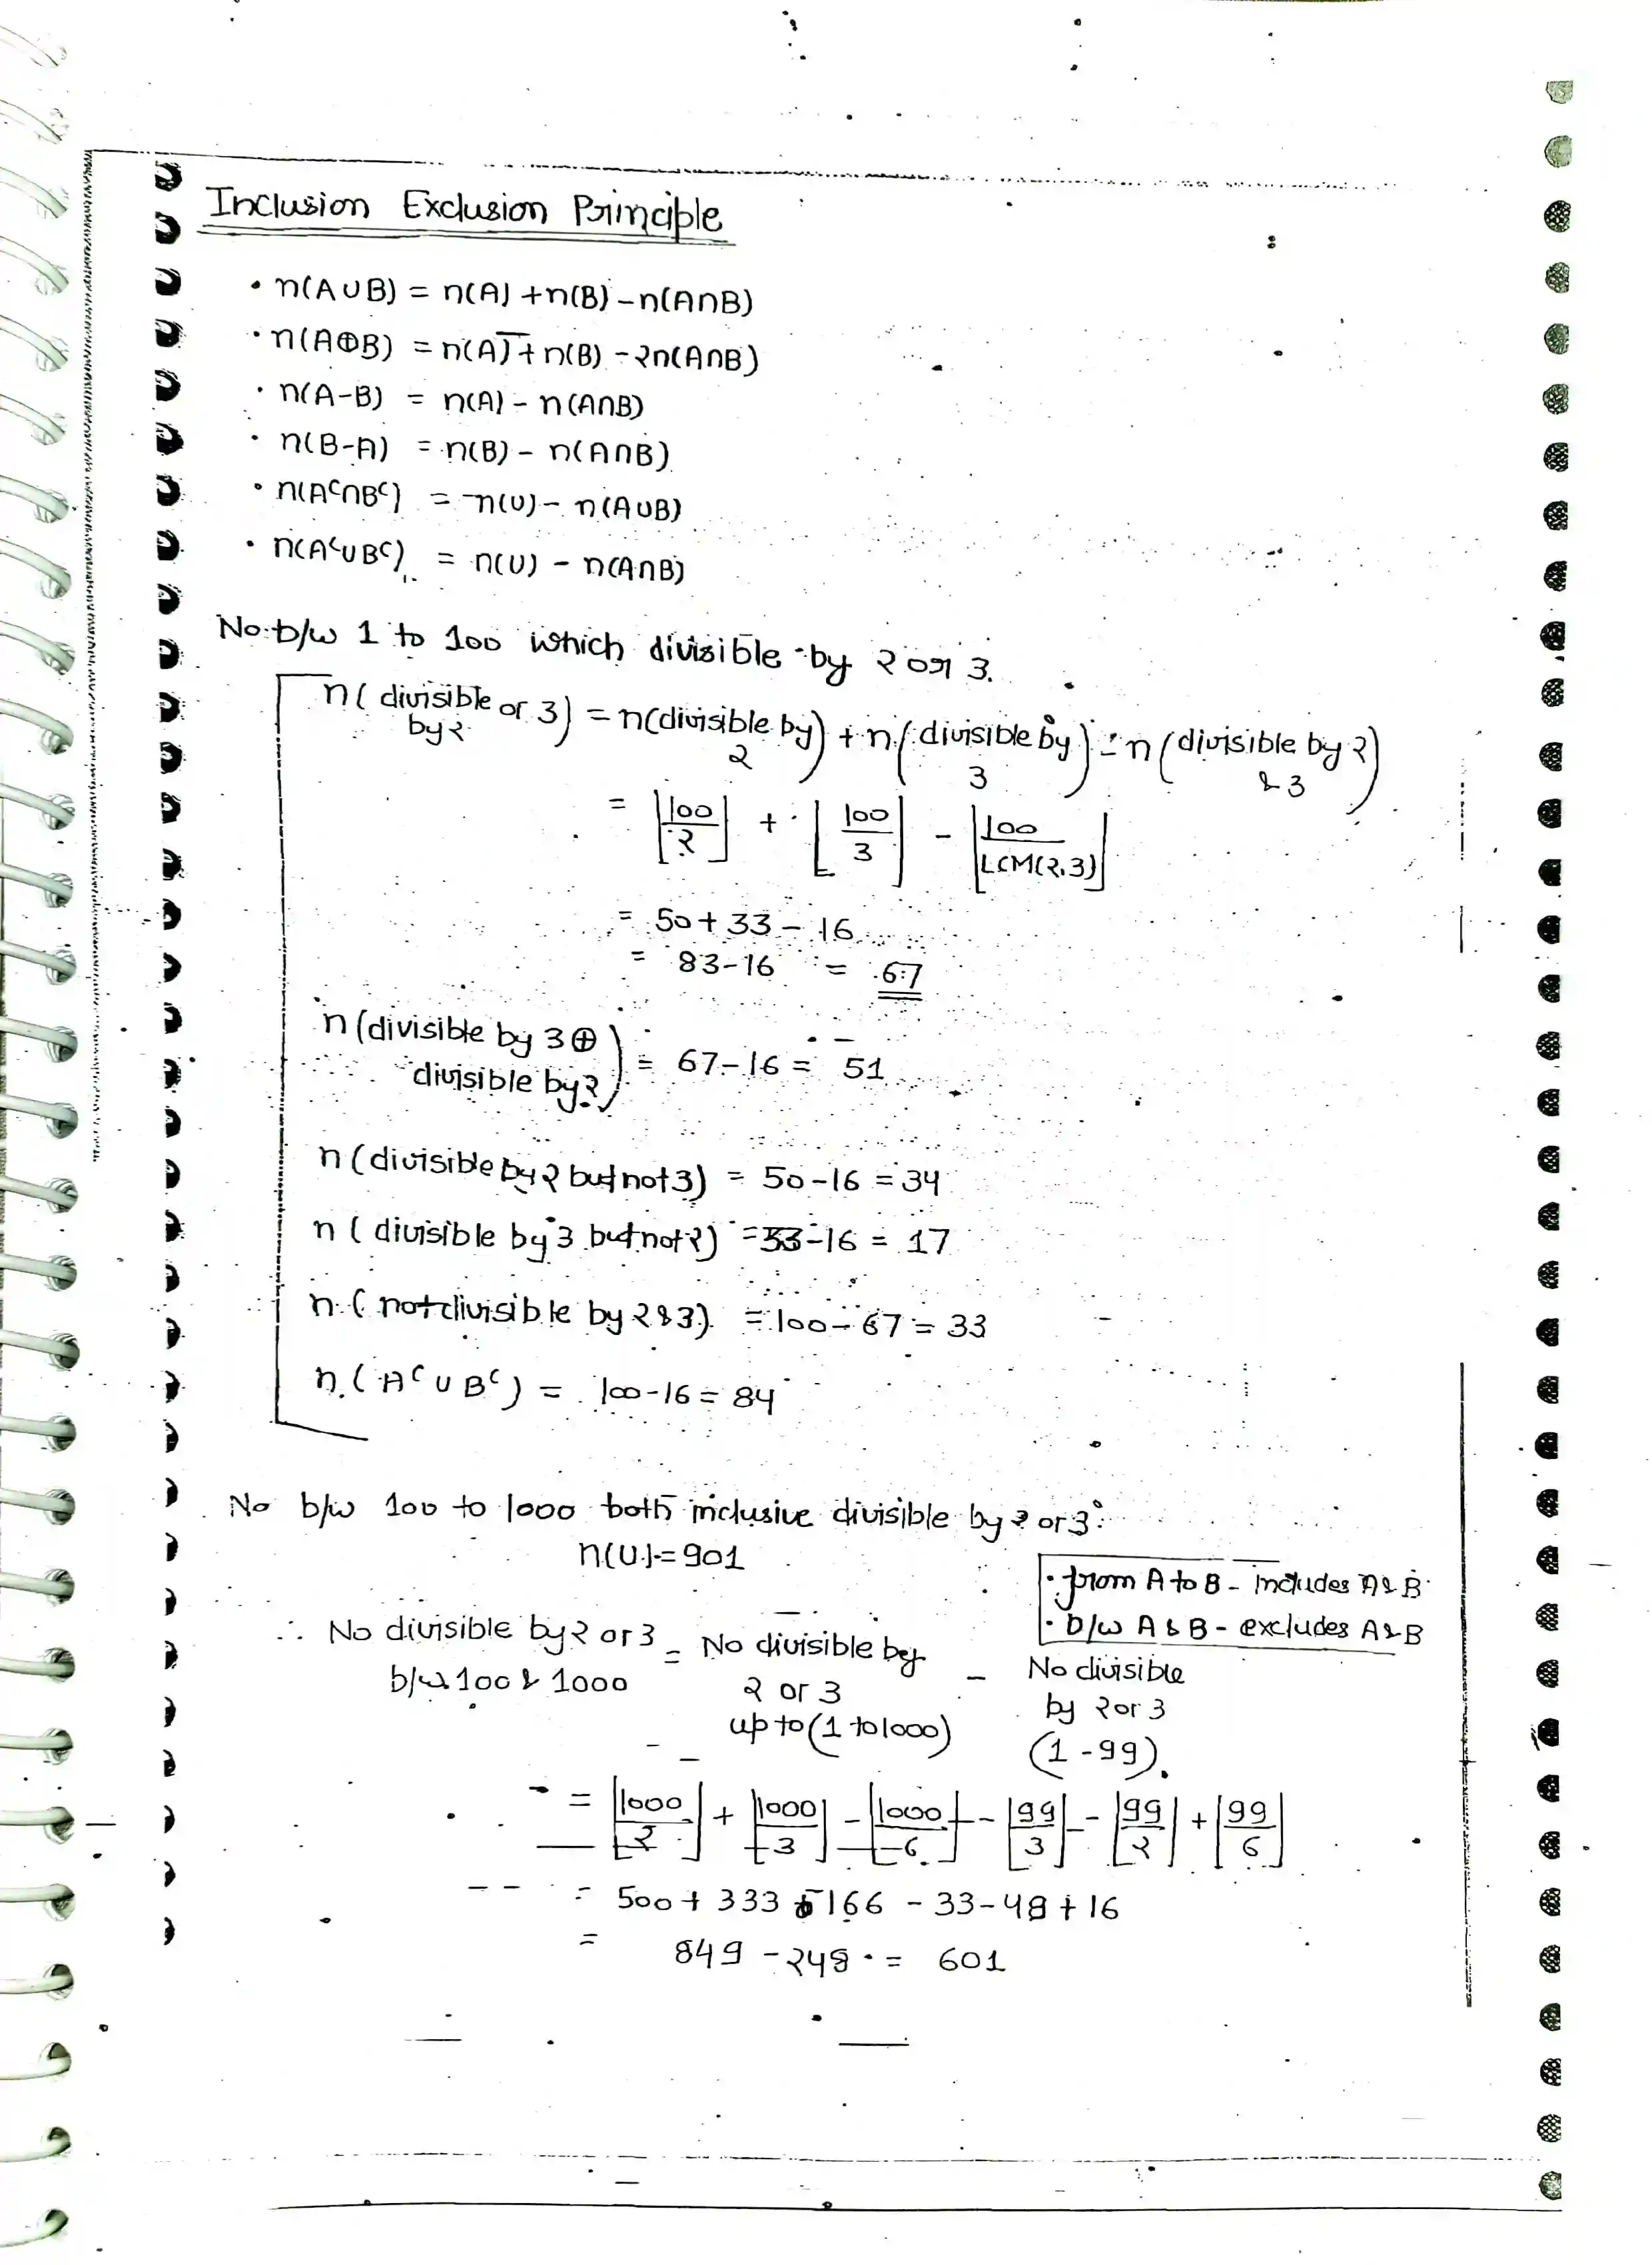 Inclusion Exclusion Principle
• n(A∪B) = n(A) + n(B) - n(A∩B)
• n(A⊕B) = n(A) + n(B) - 2n(A∩B)
• n(A-B) = n(A) - n(A∩B)
• n(B-A) = n(B) - n(A∩B)
• n(Aᶜ∩Bᶜ) = n(U) - n(A∪B)
• n(Aᶜ∪Bᶜ) = n(U) - n(A∩B)
No. b/w 1 to 100 which divisible by 2 or 3.
n(divisible by 2 or 3) = n(divisible by 2) + n(divisible by 3) - n(divisible by 2 & 3)
= ⌊100/2⌋ + ⌊100/3⌋ - ⌊100/LCM(2,3)⌋
= 50 + 33 - 16
= 83-16 = 67
n(divisible by 3 ⊕
divisible by 2) = 67-16 = 51
n(divisible by 2 but not 3) = 50-16 = 34
n(divisible by 3 but not 2) = 33-16 = 17
n(not divisible by 2 & 3) = 100-67 = 33
n(Aᶜ∪Bᶜ) = 100-16 = 84
No b/w 100 to 1000 both inclusive divisible by 2 or 3:
n(U) = 901
• from A to B - includes A & B
• b/w A & B - excludes A & B
∴ No divisible by 2 or 3 b/w 100 & 1000 = No divisible by 2 or 3 up to (1 to 1000) - No divisible by 2 or 3 (1-99).
= ⌊1000/2⌋ + ⌊1000/3⌋ - ⌊1000/6⌋ - ⌊99/3⌋ - ⌊99/2⌋ + ⌊99/6⌋
= 500 + 333 - 166 - 33 - 49 + 16
= 849 - 248 = 601